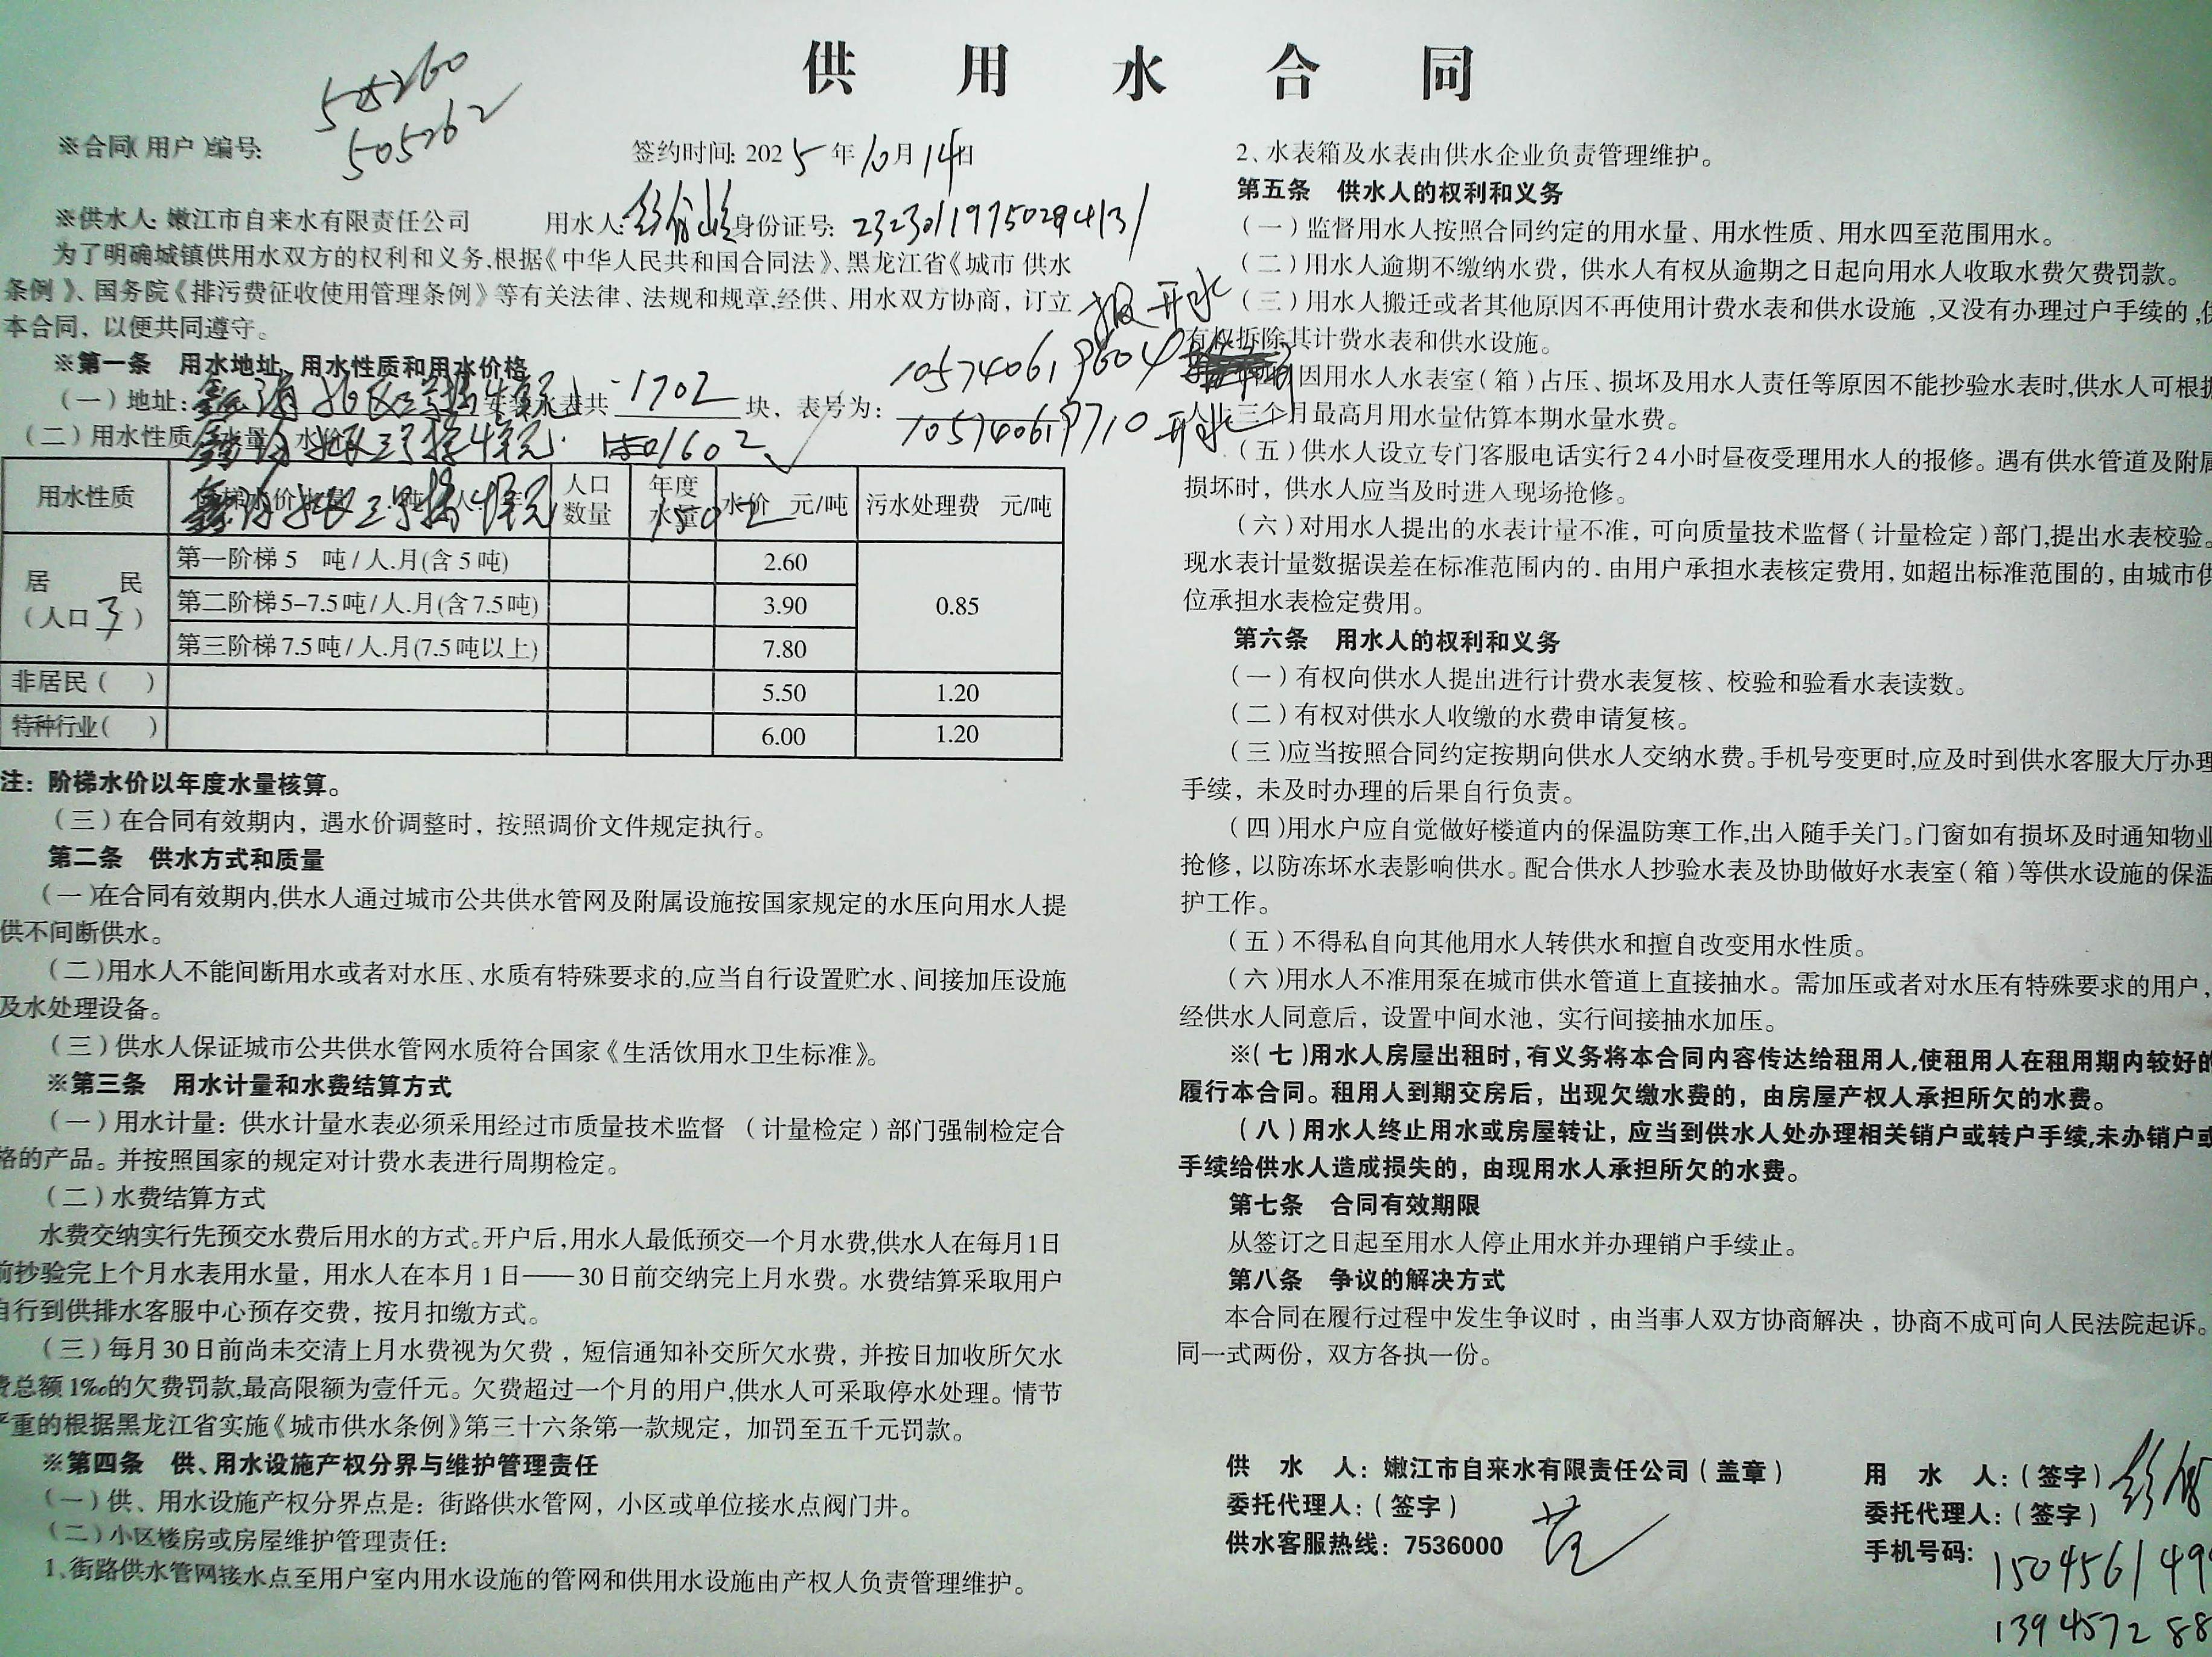 供用水合同
505260
505262
※合同(用户)编号:
签约时间: 2025年10月14日
※供水人: 嫩江市自来水有限责任公司 用水人: 身份证号:
为了明确城镇供用水双方的权利和义务,根据《中华人民共和国合同法》、黑龙江省《城市 供水
条例》、国务院《排污费征收使用管理条例》等有关法律、法规和规章,经供、用水双方协商，订立
本合同，以便共同遵守。
※第一条 用水地址、用水性质和用水价格
(一)地址: 三号楼4单元 安装水表共 1702 块，表号为: 105740619604 报开水
(二)用水性质、水量、水价 三号楼4单元 1602 105740619710 开水
三号楼4单元 1502
用水性质 人口数量 年度水量 水价 元/吨 污水处理费 元/吨
居民(人口3) 第一阶梯5 吨/人.月(含5吨) 2.60 0.85
第二阶梯5-7.5吨/人.月(含7.5吨) 3.90
第三阶梯7.5吨/人.月(7.5吨以上) 7.80
非居民( ) 5.50 1.20
特种行业( ) 6.00 1.20
注: 阶梯水价以年度水量核算。
(三)在合同有效期内，遇水价调整时，按照调价文件规定执行。
第二条 供水方式和质量
(一)在合同有效期内,供水人通过城市公共供水管网及附属设施按国家规定的水压向用水人提
供不间断供水。
(二)用水人不能间断用水或者对水压、水质有特殊要求的,应当自行设置贮水、间接加压设施
及水处理设备。
(三)供水人保证城市公共供水管网水质符合国家《生活饮用水卫生标准》。
※第三条 用水计量和水费结算方式
(一)用水计量: 供水计量水表必须采用经过市质量技术监督 (计量检定)部门强制检定合
格的产品。并按照国家的规定对计费水表进行周期检定。
(二)水费结算方式
水费交纳实行先预交水费后用水的方式。开户后,用水人最低预交一个月水费,供水人在每月1日
前抄验完上个月水表用水量，用水人在本月1日——30日前交纳完上月水费。水费结算采取用户
自行到供排水客服中心预存交费，按月扣缴方式。
(三)每月30日前尚未交清上月水费视为欠费，短信通知补交所欠水费，并按日加收所欠水
费总额1‰的欠费罚款,最高限额为壹仟元。欠费超过一个月的用户,供水人可采取停水处理。情节
严重的根据黑龙江省实施《城市供水条例》第三十六条第一款规定，加罚至五千元罚款。
※第四条 供、用水设施产权分界与维护管理责任
(一)供、用水设施产权分界点是: 街路供水管网，小区或单位接水点阀门井。
(二)小区楼房或房屋维护管理责任:
1、街路供水管网接水点至用户室内用水设施的管网和供用水设施由产权人负责管理维护。
2、水表箱及水表由供水企业负责管理维护。
第五条 供水人的权利和义务
(一)监督用水人按照合同约定的用水量、用水性质、用水四至范围用水。
(二)用水人逾期不缴纳水费，供水人有权从逾期之日起向用水人收取水费欠费罚款。
(三)用水人搬迁或者其他原因不再使用计费水表和供水设施,又没有办理过户手续的,供
有权拆除其计费水表和供水设施。
因用水人水表室(箱)占压、损坏及用水人责任等原因不能抄验水表时,供水人可根据
三个月最高月用水量估算本期水量水费。
(五)供水人设立专门客服电话实行24小时昼夜受理用水人的报修。遇有供水管道及附属
损坏时，供水人应当及时进入现场抢修。
(六)对用水人提出的水表计量不准，可向质量技术监督(计量检定)部门,提出水表校验。
现水表计量数据误差在标准范围内的，由用户承担水表核定费用，如超出标准范围的，由城市供
位承担水表检定费用。
第六条 用水人的权利和义务
(一)有权向供水人提出进行计费水表复核、校验和验看水表读数。
(二)有权对供水人收缴的水费申请复核。
(三)应当按照合同约定按期向供水人交纳水费。手机号变更时,应及时到供水客服大厅办理
手续，未及时办理的后果自行负责。
(四)用水户应自觉做好楼道内的保温防寒工作,出入随手关门。门窗如有损坏及时通知物业
抢修，以防冻坏水表影响供水。配合供水人抄验水表及协助做好水表室(箱)等供水设施的保温
护工作。
(五)不得私自向其他用水人转供水和擅自改变用水性质。
(六)用水人不准用泵在城市供水管道上直接抽水。需加压或者对水压有特殊要求的用户，
经供水人同意后，设置中间水池，实行间接抽水加压。
※(七)用水人房屋出租时,有义务将本合同内容传达给租用人,使租用人在租用期内较好的
履行本合同。租用人到期交房后，出现欠缴水费的，由房屋产权人承担所欠的水费。
(八)用水人终止用水或房屋转让，应当到供水人处办理相关销户或转户手续,未办销户或
手续给供水人造成损失的，由现用水人承担所欠的水费。
第七条 合同有效期限
从签订之日起至用水人停止用水并办理销户手续止。
第八条 争议的解决方式
本合同在履行过程中发生争议时，由当事人双方协商解决，协商不成可向人民法院起诉。
同一式两份，双方各执一份。
供水人: 嫩江市自来水有限责任公司(盖章) 用水人: (签字)
委托代理人: (签字) 范 委托代理人: (签字)
供水客服热线: 7536000 手机号码: 150456149
139457288